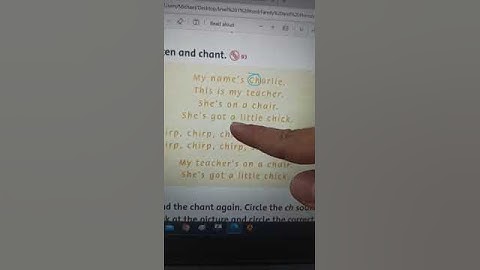 Users/Michael/Desktop/
Read aloud
en and chant.
My name's Charlie.
This is my teacher.
She's on a chair.
She's got a little chick.
irp, chirp, ch
irp, chirp, chirp,
My teacher's on a chair
She's got a little chick
d the chant again. Circle the ch soun
k at the picture and circle the correct